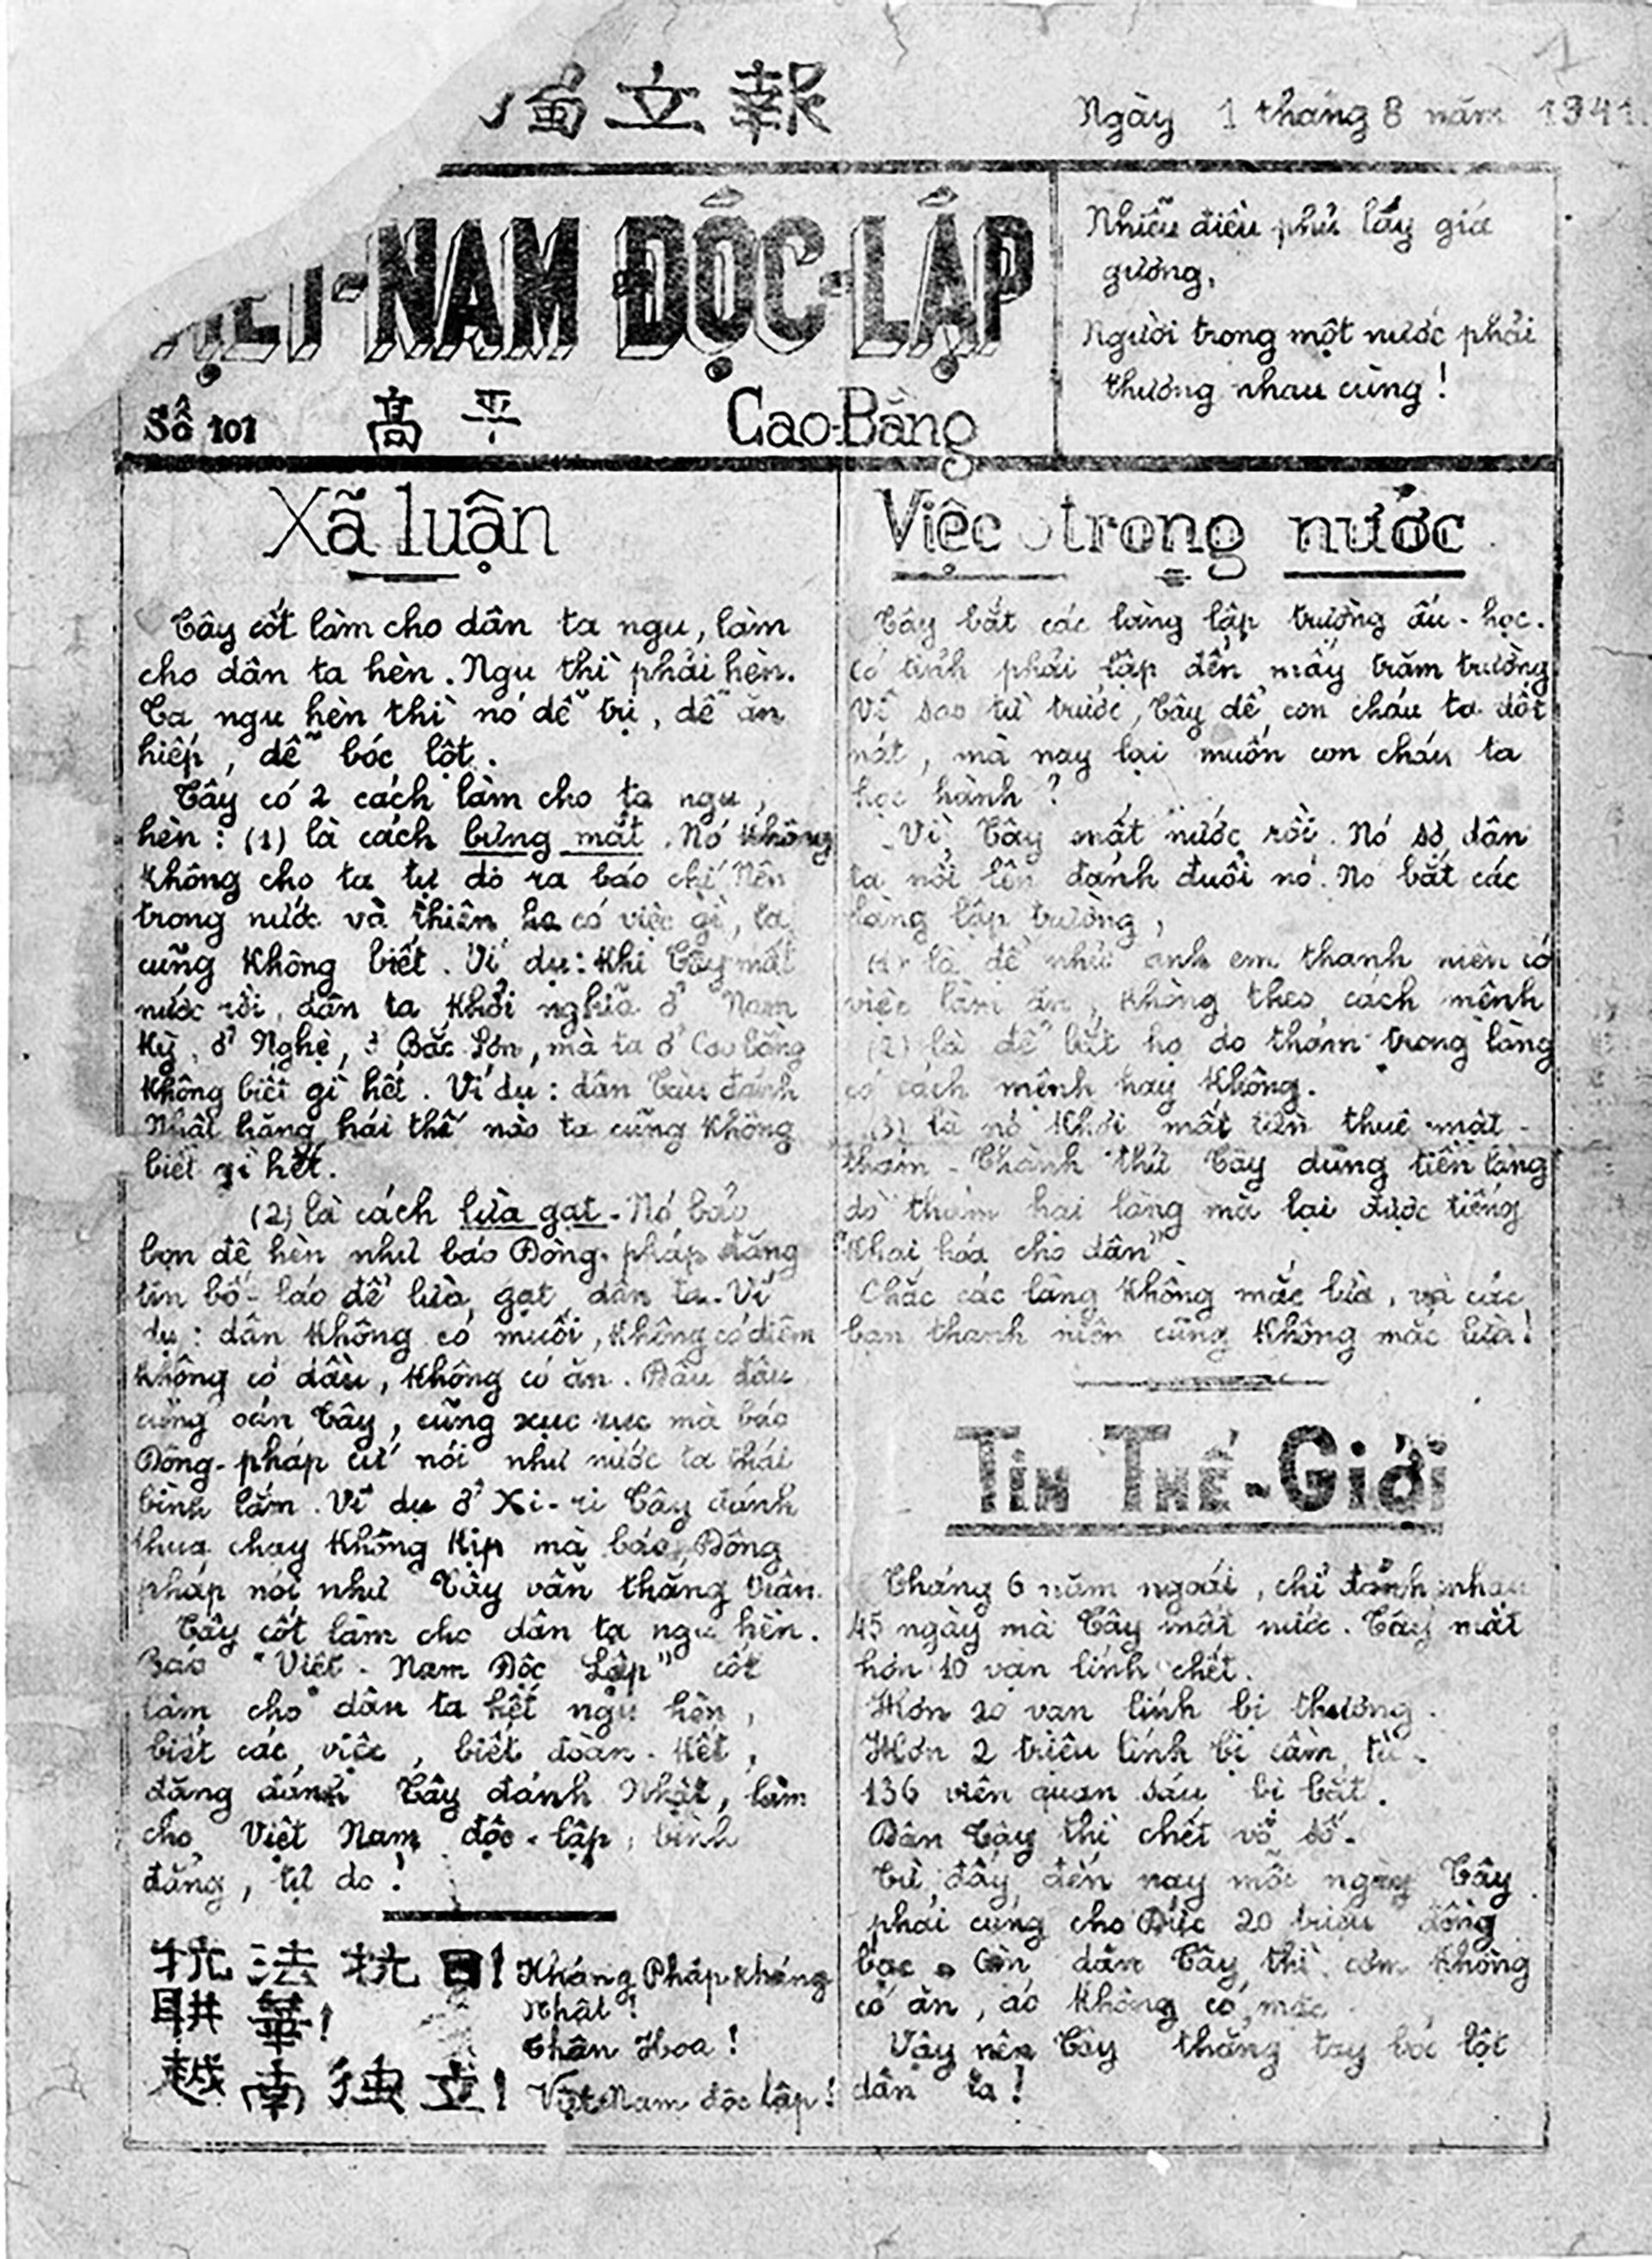 獨立報
Ngày 1 tháng 8 năm 1941.
VIỆT-NAM ĐỘC-LẬP
Số 101 高平 Cao-Bằng
Nhiễu điều phủ lấy giá
gương,
Người trong một nước phải
thương nhau cùng!
Xã luận
Tây cốt làm cho dân ta ngu, làm
cho dân ta hèn. Ngu thì phải hèn.
Ta ngu hèn thì nó dễ trị, dễ ăn
hiếp, dễ bóc lột.
Tây có 2 cách làm cho ta ngu,
hèn: (1) là cách bưng mắt. Nó không
không cho ta tự do ra báo chí. Nên
trong nước và thiên hạ có việc gì, ta
cũng không biết. Ví dụ: khi Tây mất
nước rồi, dân ta khởi nghĩa ở Nam
Kỳ, ở Nghệ, ở Bắc Sơn, mà ta ở Cao bằng
không biết gì hết. Ví dụ: dân Tàu đánh
Nhật hăng hái thế nào ta cũng không
biết gì hết.
(2) là cách lừa gạt. Nó bảo
bọn đê hèn như báo Đông-pháp đăng
tin bố láo để lừa gạt dân ta. Ví
dụ: dân không có muối, không có diêm
không có dầu, không có ăn. Đâu đâu
cũng oán Tây, cũng xục rục mà báo
Đông-pháp cứ nói như nước ta thái
bình lắm. Ví dụ ở Xi-ri Tây đánh
thua chạy không kịp mà báo Đông
pháp nói như Tây vẫn thắng trận.
Tây cốt làm cho dân ta ngu hèn.
Báo "Việt-Nam Độc Lập" cốt
làm cho dân ta hết ngu hèn,
biết các việc, biết đoàn-kết,
đặng đánh Tây đánh Nhật, làm
cho Việt Nam độc-lập, bình
đẳng, tự do!
抗法抗日! Kháng Pháp kháng
Nhật!
聨華! Thân Hoa!
越南独立! Việt-Nam độc lập!
Việc trong nước
Tây bắt các làng lập trường ấu-học.
Có tỉnh phải lập đến mấy trăm trường
Vì sao từ trước, Tây để con cháu ta dốt
nát, mà nay lại muốn con cháu ta
học hành?
Vì Tây mất nước rồi. Nó sợ dân
ta nổi lên đánh đuổi nó. Nó bắt các
làng lập trường,
(1) là để nhử anh em thanh niên có
việc làm ăn, không theo cách mệnh
(2) là để bắt họ do thám trong làng
có cách mệnh hay không.
(3) là nó khỏi mất tiền thuê mật-
thám. Thành thử Tây dùng tiền làng
dò thám hại làng mà lại được tiếng
"Khai hóa cho dân".
Chắc các làng không mắc lừa, và các
bạn thanh niên cũng không mắc lừa!
TIN THẾ-GIỚI
Tháng 6 năm ngoái, chỉ đánh nhau
45 ngày mà Tây mất nước. Tây mất
hơn 10 vạn lính chết.
Hơn 20 vạn lính bị thương.
Hơn 2 triệu lính bị cầm tù.
136 viên quan sáu bị bắt.
Dân Tây thì chết vô số.
Từ đấy đến nay mỗi ngày Tây
phải cúng cho Đức 20 triệu đồng
bạc. Còn dân Tây thì cơm không
có ăn, áo không có mặc
Vậy nên Tây thẳng tay bóc lột
dân ta!